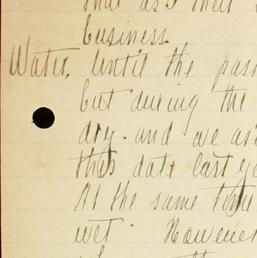 that as I their
business
Water. Until the pas
but during the
dry - and we are
this date last ye
At the same time
wet - However